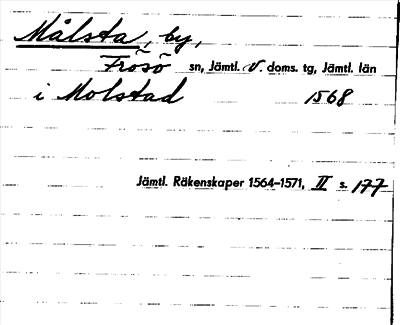 Målsta, by,
Frösö sn, Jämtl. v. doms. tg, Jämtl. län
i Molstad 1568
Jämtl. Räkenskaper 1564–1571, II s. 177